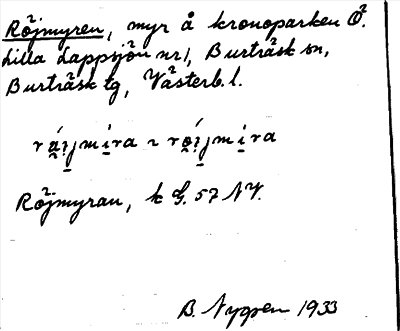 Röjmyren, myr å kronoparken Ö.
Lilla Lappsjön nr 1, Burträsk sn,
Burträsk tg, Västerb. l.
Röjmyran, k G. 57 NV.
B. Nygren 1933